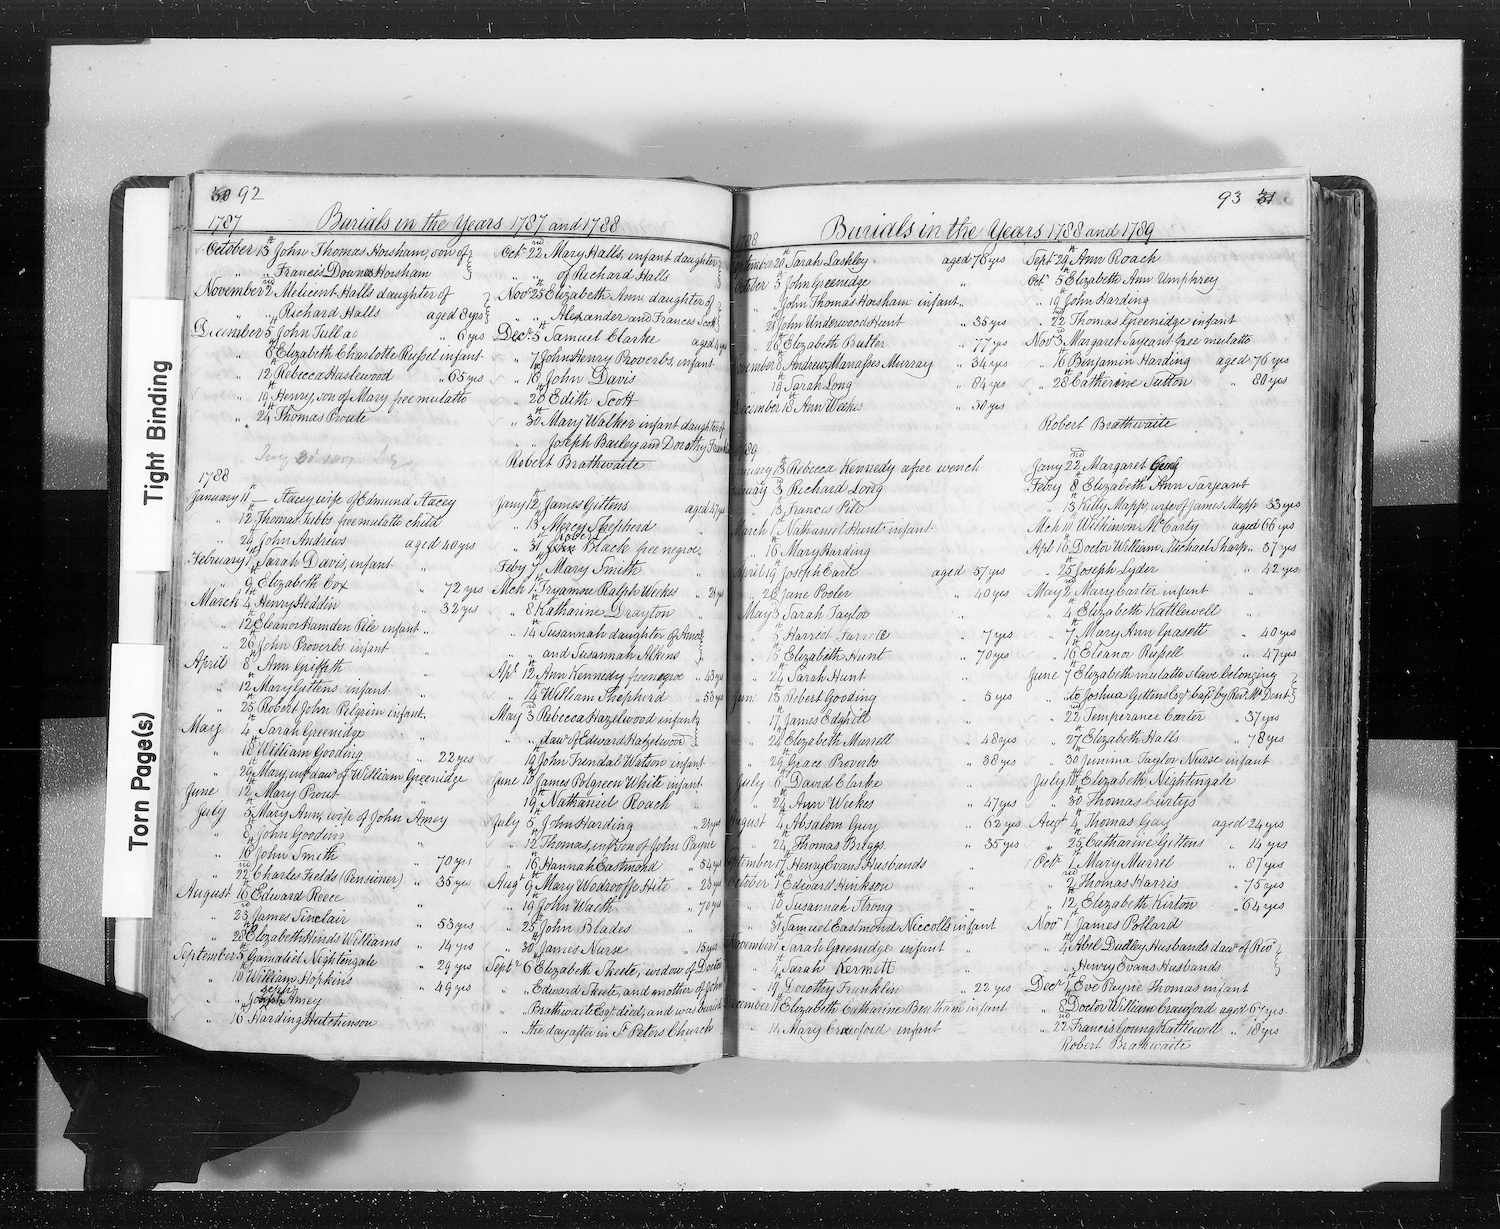 30 92
1787 Burials in the Years 1787 and 1788
October 13th John Thomas Horsham, son of
" " Francis Downes Horsham
November 2nd Melicent Halls daughter of
" " Richard Halls aged 8 yrs
December 5th John Tull at " 6 yrs
" 8th Elizabeth Charlotte Russel infant
" 12 Rebecca Haslewood " 65 yrs
" 19th Henry, son of Mary free mulatto
" 24th Thomas Proute
1788
January 11th — Stacey wife of Edmund Stacey
" 12th Thomas Tibbs free mulatto child
" 24th John Andrews aged 40 yrs
February 1st Sarah Davis, infant "
" 9th Elizabeth Cox " 72 yrs
March 4th Henry Heddin " 32 yrs
" 12th Eleanor Hamden Pile infant "
" 26th John Proverbs infant
April 8th Ann Griffith "
" 12th Mary Gittens infant "
" 25th Robert John Pilgrim infant "
May 4th Sarah Greenidge
" 18th William Gooding " 22 yrs
" 29th Mary inft daur of William Greenidge
June 12th Mary Prout "
July 5th Mary Ann, wife of John Amey
" 8th John Gooding
" 16th John Smith " 70 yrs
" 22nd Charles Fields (Pensioner) " 35 yrs
August 16th Edward Reece "
" 23rd James Sinclair " 53 yrs
" 28th Elizabeth Hinds Williams " 14 yrs
September 5th Gamaliel Nightengale " 29 yrs
" 10th William Hopkins " 49 yrs
" " Joseph Amey
" 16th Harding Hutchinson
Octr 22nd Mary Halls, infant daughter
" " of Richard Halls
Novr 25 Elizabeth Ann daughter of
" " Alexander and Frances Scott
Decr 5th Samuel Clarke aged
" 7th John Henry Proverbs, infant
" 16th John Davis
" 20th Edith Scott
" 30th Mary Walker infant daughter of
" " Joseph Bailey and Dorothy
Robert Brathwaite
Jany 12th James Gittens aged 47 yrs
" 13th Mercy Shepherd "
" 31st Robert Black free negroe
Feby 7th Mary Smith "
Mch 1st Tryamore Ralph Weekes "
" 8th Katharine Drayton "
" 14th Susannah daughter of Amos
" " and Susannah Atkins
Apl 12th Ann Kennedy free negroe " 43 yrs
" 14th William Shepherd " 50 yrs
May 3rd Rebecca Hazelwood infant
" " daur of Edward Hatzelwood
" 19th John Trendal Watson infant
June 10th James Polgreen White infant
" 19th Nathaniel Roach "
July 5th John Harding " 21 yrs
" 12th Thomas, inft son of John Payne
" 16th Hannah Eastmond " 54 yrs
Augt 9th Mary Wodrooffe Hite " 23 yrs
" 19th John Waeth " 70 yrs
" 25th John Blades "
" 30th James Nurse " 15 yrs
Septr 6th Elizabeth Skeete, widow of Doctor
" " Edward Skeete, and mother of John
" " Brathwaite Esqr died, and was buried
" " the day after in St Peters Church
93 31
Burials in the Years 1788 and 1789
20th Sarah Lashley aged 78 yrs
October 5th John Greenidge "
" " John Thomas Horsham infant "
" 21st John Underwood Hunt " 35 yrs
" 26th Elizabeth Butler " 77 yrs
8th Andrew Manasses Murray " 34 yrs
" 19th Sarah Long " 84 yrs
18th Ann Weekes " 50 yrs
13th Rebecca Kennedy a free wench
3rd Richard Long
" 13th Francis Pile
March 1st Nathaniel Hunt infant
" 16th Mary Harding
April 19th Joseph Earle aged 57 yrs
" 26th Jane Pooler " 40 yrs
May 3rd Sarah Taylor
" 5th Harriot " 7 yrs
" 15th Elizabeth Hunt " 70 yrs
" 24th Sarah Hunt "
13th Robert Gooding 5 yrs
" 17th James Edghill
" 24th Elizabeth Murrell " 48 yrs
" 29th Grace Proverbs " 38 yrs
July 6th David Clarke
" 24th Ann Weekes " 47 yrs
4th Absalom Guy " 62 yrs
" 24th Thomas Briggs " 35 yrs
17th Henry Evans Husbands
1st Edward Hinkson "
" 10th Susannah Strong "
" 31st Samuel Eastmond Niccolls infant
1st Sarah Greenidge infant
" 4th Sarah Kermett "
" 19th Dorothy Franklin " 22 yrs
11th Elizabeth Catharine Bentham infant
" 14th Mary Crawford infant
Septr 29th Ann Roach
Octr 5th Elizabeth Ann Umphrey
" 19th John Harding
" 22nd Thomas Greenidge infant
Novr 3rd Margaret Sayeant free mulatto
" 16th Benjamin Harding aged 76 yrs
" 28th Catherine Sutton " 80 yrs
Robert Brathwaite
Jany 22nd Margaret
Febry 8th Elizabeth Ann Sarjeant
" 13th Kitty Mapp, wife of James Mapp 33 yrs
Mch 10th Wilkinson McCarty aged 66 yrs
Apl 10th Doctor William Michael Sharp " 37 yrs
" 25th Joseph Lyder " 42 yrs
May 2nd Mary Carter infant
" 4th Elizabeth Kattlewell "
" 7th Mary Ann Grasett " 40 yrs
" 16th Eleanor Russell " 47 yrs
June 7th Elizabeth mulatto slave belonging
" to Joshua Gittens Esqr bapd by Revd Mr Dent
" 22nd Temperance Carter 37 yrs
" 27th Elizabeth Halls " 78 yrs
" 30th Jemima Taylor Nurse infant
July 10th Elizabeth Nightengale
" 30th Thomas Curtys
Augt 4th Thomas Gay aged 24 yrs
" 25th Catharine Gittens " 14 yrs
Octr 1st Mary Murrel " 87 yrs
" 2nd Thomas Harris " 75 yrs
" 12th Elizabeth Kirton " 64 yrs
Novr 1st James Pollard
" 4th Abel Dudley Husbands daur of Revd
" Henry Evans Husbands
Decr 1st Eve Payne Thomas infant
" 8th Doctor William Crawford aged 67 yrs
" 22nd Francis Young Kattlewell " 18 yrs
Robert Brathwaite
Tight Binding
Torn Page(s)